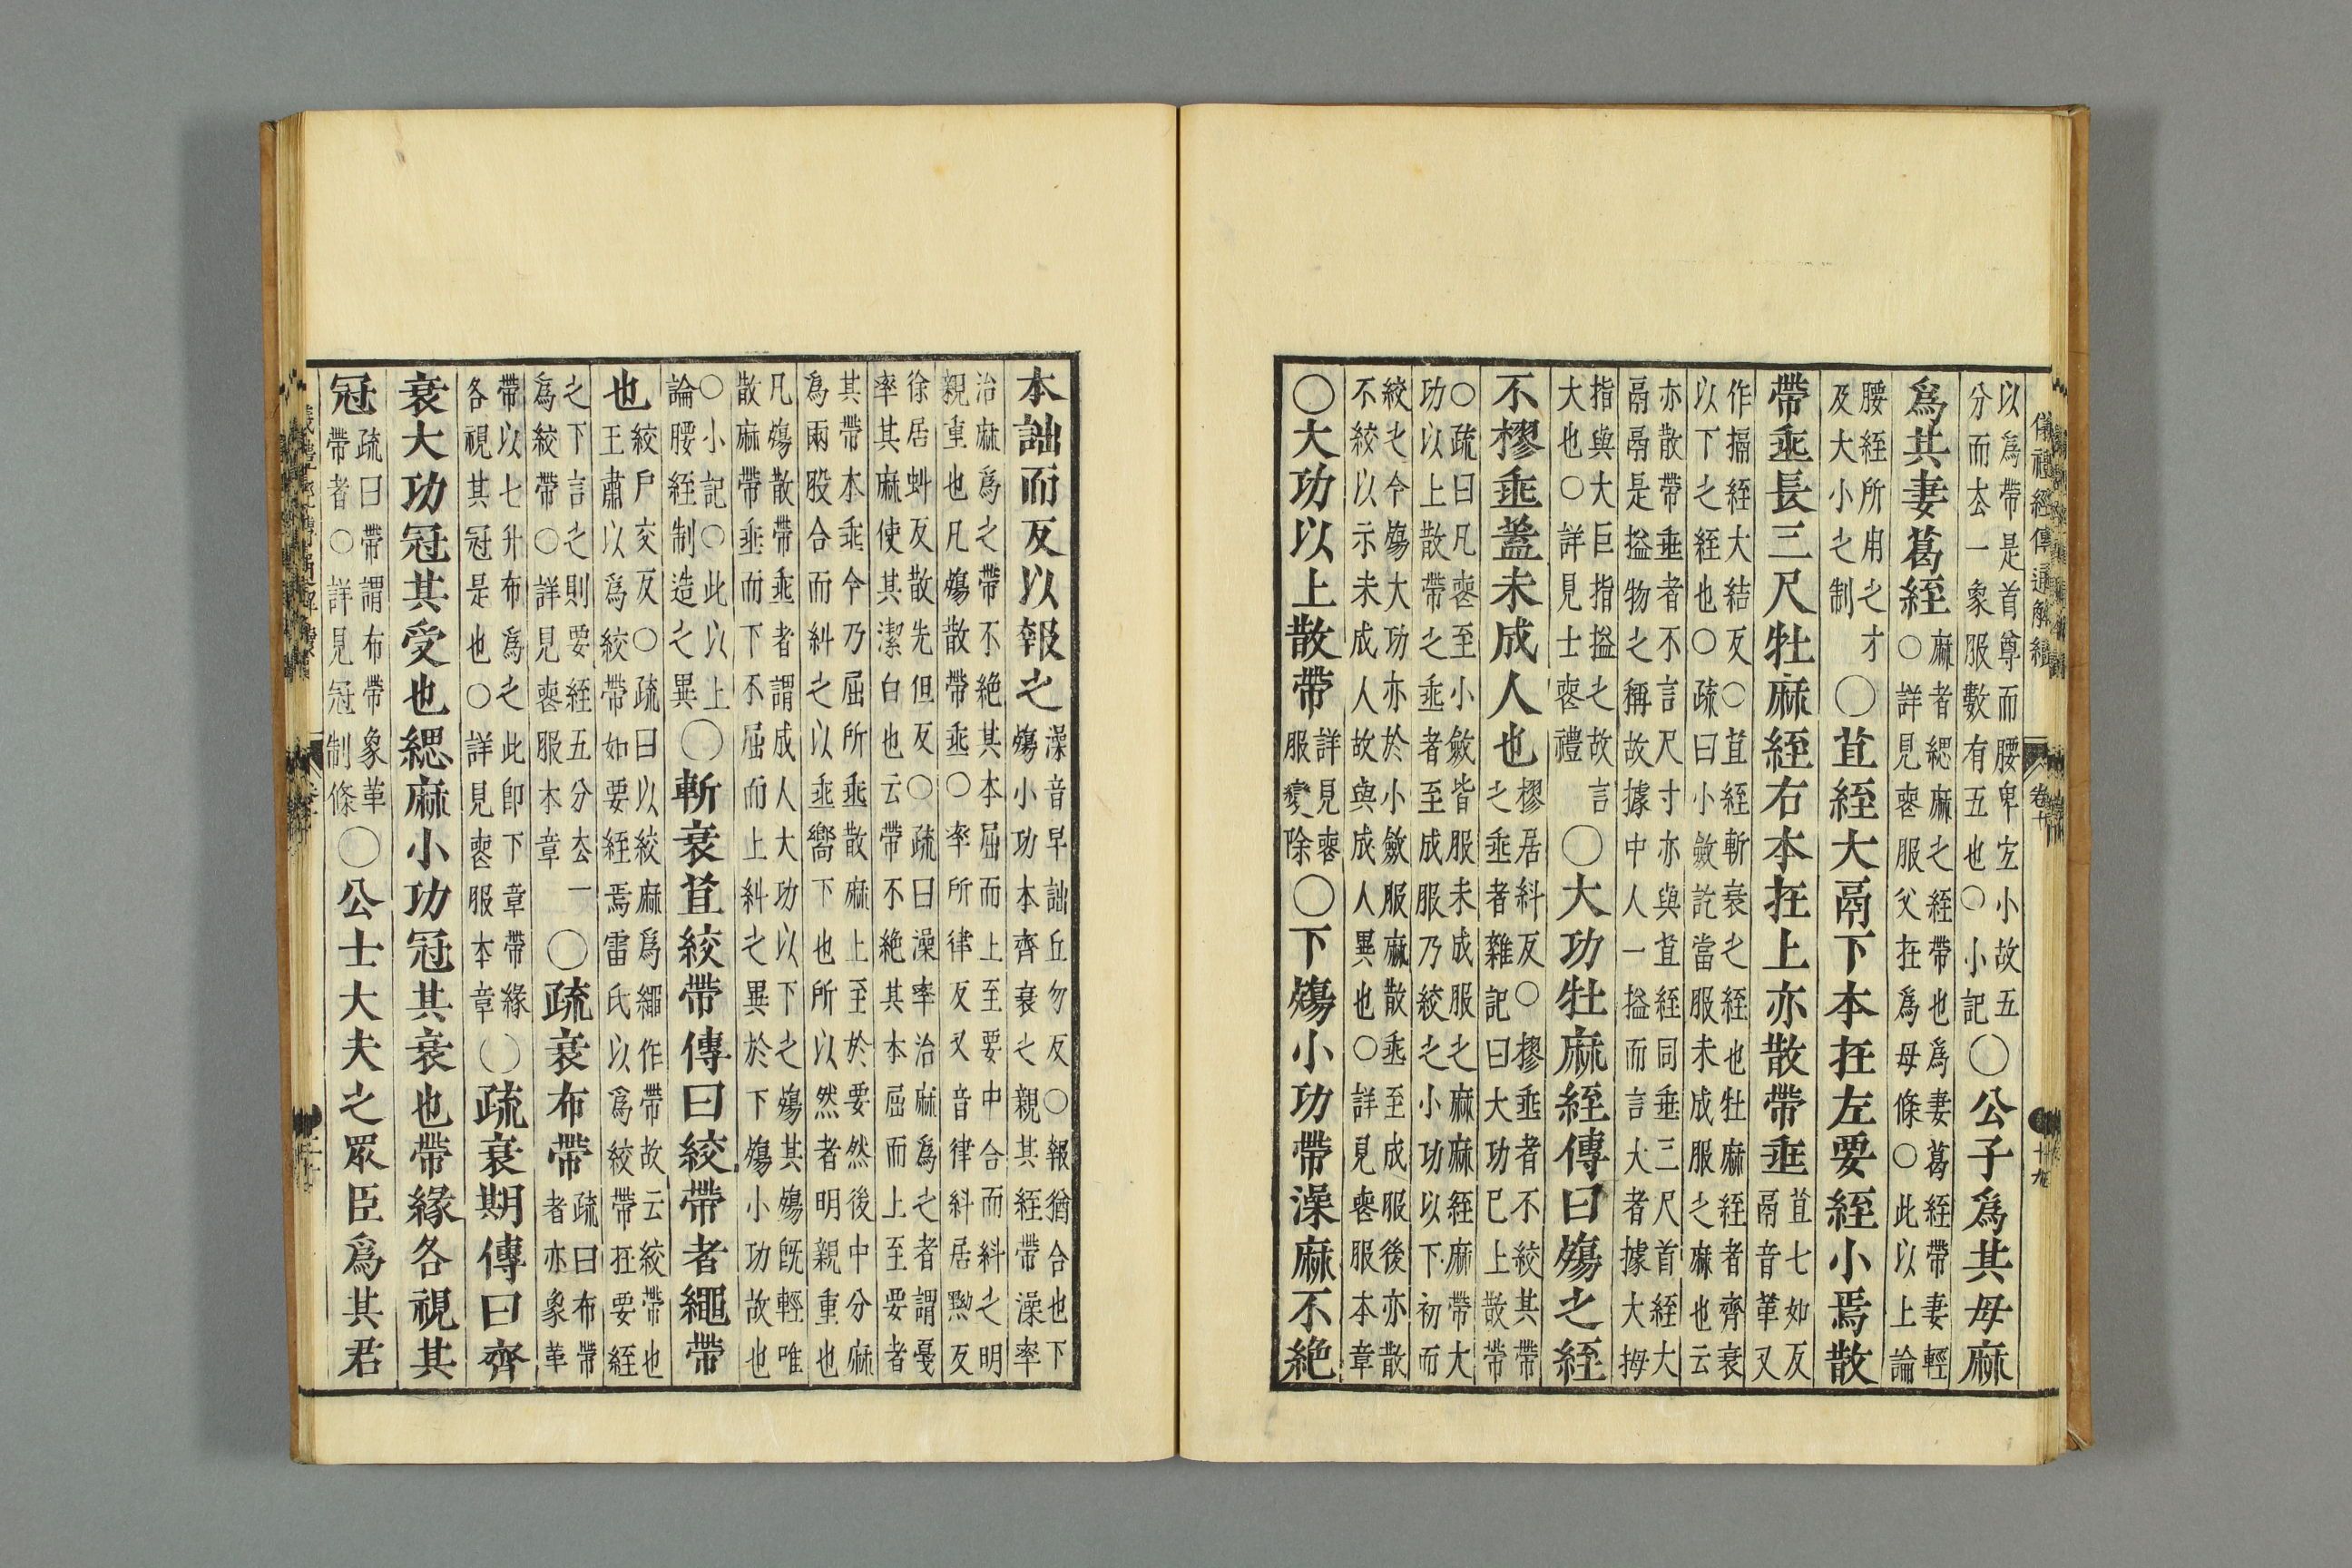 儀禮經傳通解續 卷十 十九
以爲帶是首尊而腰卑宐小故五
分而去一象服數有五也○小記
○公子爲其母麻
爲其妻葛絰
麻者緦麻之絰帶也爲妻葛絰帶妻輕
○詳見喪服父在爲母條○此以上論
腰絰所用之才
及大小之制
○苴絰大鬲下本在左要絰小焉散
帶垂長三尺牡麻絰右本在上亦散帶垂
苴七如反
鬲音革又
作搹絰大結反○苴絰斬衰之絰也牡麻絰者齊衰
以下之絰也○疏曰小斂訖當服未成服之麻也云
亦散帶垂者不言尺寸亦與苴絰同垂三尺首絰大
鬲鬲是搤物之稱故據中人一搤而言大者據大拇
指與大巨指搤之故言
大也○詳見士喪禮
○大功牡麻絰傳曰殤之絰
不樛垂蓋未成人也
樛居糾反○樛垂者不絞其帶
之垂者雜記曰大功已上散帶
○疏曰凡喪至小斂皆服未成服之麻麻絰麻帶大
功以上散帶之垂者至成服乃絞之小功以下初而
絞之今殤大功亦於小斂服麻散垂至成服後亦散
不絞以示未成人故與成人異也○詳見喪服本章
○大功以上散帶
詳見喪
服變除
○下殤小功帶澡麻不絶
本詘而反以報之
澡音早詘丘勿反○報猶合也下
殤小功本齊衰之親其絰帶澡率
治麻爲之帶不絶其本屈而上至要中合而糾之明
親重也凡殤散帶垂○率所律反又音律糾居黝反
徐居虯反散先但反○疏曰澡率治麻爲之者謂戞
率其麻使其潔白也云帶不絶其本屈而上至要者
其帶本垂今乃屈所垂散麻上至於要然後中分麻
爲兩股合而糾之以垂嚮下也所以然者明親重也
凡殤散帶垂者謂成人大功以下之殤其殤旣輕唯
散麻帶垂而下不屈而上糾之異於下殤小功故也
○小記○此以上
論腰絰制造之異
○斬衰苴絞帶傳曰絞帶者繩帶
也
絞戶交反○疏曰以絞麻爲繩作帶故云絞帶也
王肅以爲絞帶如要絰焉雷氏以爲絞帶在要絰
之下言之則要絰五分去一
爲絞帶○詳見喪服本章
○疏衰布帶
疏曰布帶
者亦象革
帶以七升布爲之此卽下章帶緣
各視其冠是也○詳見喪服本章
○疏衰期傳曰齊
衰大功冠其受也緦麻小功冠其衰也帶緣各視其
冠
疏曰帶謂布帶象革
帶者○詳見冠制條
○公士大夫之眾臣爲其君